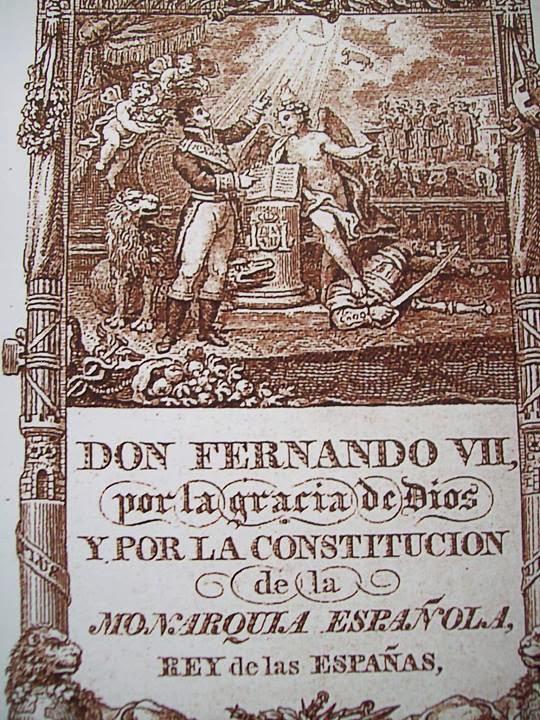 DON FERNANDO VII,
por la gracia de Dios
Y, POR LA CONSTITUCION
de la
MONARQUIA ESPAÑOLA,
REY de las ESPAÑAS,